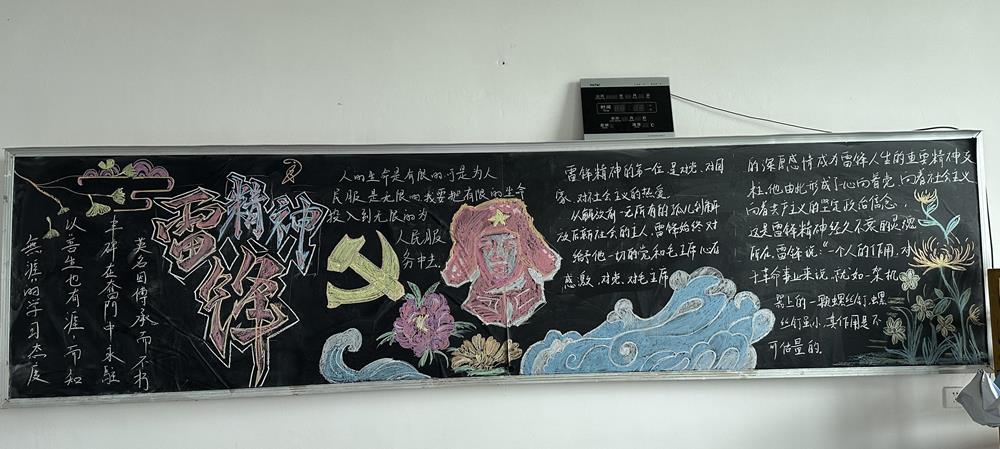 雷锋
精神
英名因傅承而不朽
丰碑在奮鬥中永駐
以吾生也有涯,而知
無涯的学习态度
人的生命是有限的,可是为人
民服务是无限的,我要把有限的生命
投入到无限的为
人民服
务中去
雷锋精神的第一位是对党、对国
家、对社会主义的热爱。
从解放前一无所有的孤儿到解
放后新社会的主人,雷锋始终对
给予他一切的党和毛主席心存
感激,对党、对毛主席
的深厚感情成为雷锋人生的重要精神支
柱,他由此形成了心向着党、向着社会主义
向着共产主义的坚定政治信念,
这是雷锋精神经久不衰的思想
所在,雷锋说:“一个人的作用,对
于革命事业来说,就如一架机
器上的一颗螺丝钉,螺
丝钉虽小,其作用是不
可估量的。
时间